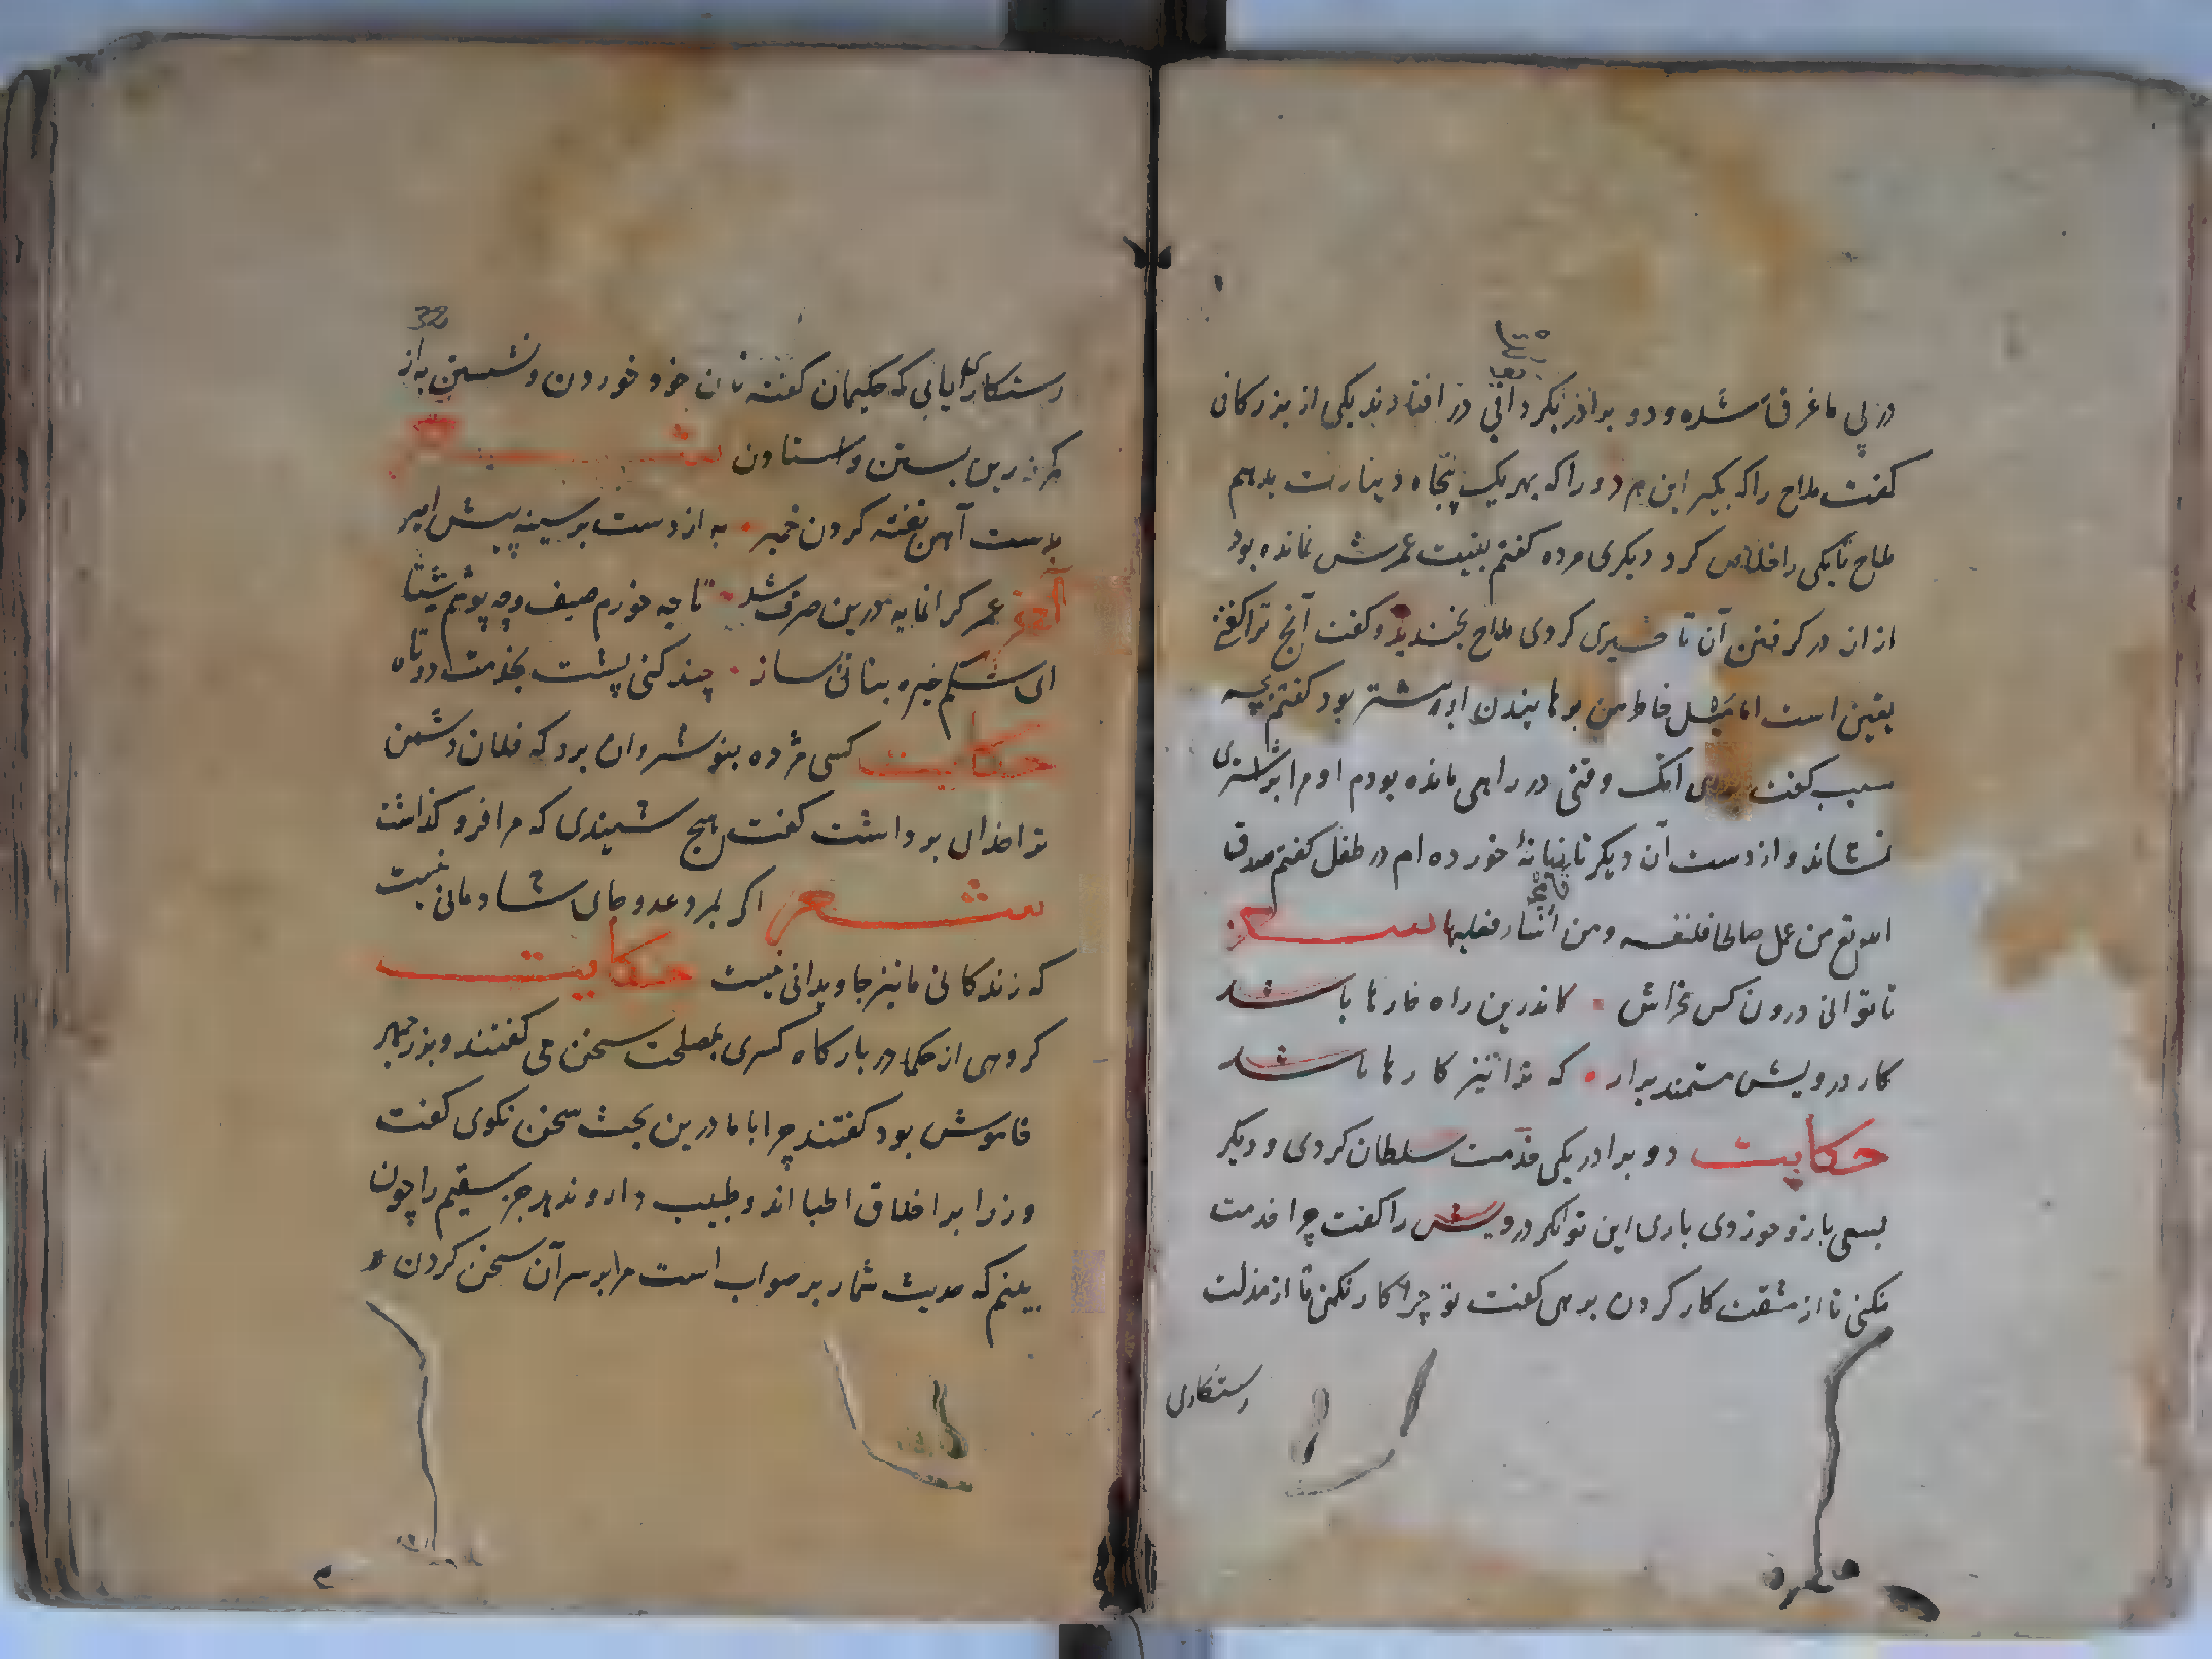 در پی ما غرق شده و دو برادر بگردابی در افتادند یکی از بزرکان
کفت ملاح را که بکیر این هر دو را که بهر یک پنجاه دینارت بدهم
ملاح تا یکی را خلاص کرد دیکری مرده کفتم بقیت عمرش نمانده بود
از ان در کرفتن آن تاخیری کردی ملاح بخندید و کفت آنچ تو کفتی
یقین است اما میل خاطر من برهانیدن او بیشتر بود کفتم بچه
سبب کفت انک وقتی در راهی مانده بودم او مرا بر اشتری
نشاند و از دست آن دیکر تازیانهٔ خورده ام در طفلی کفتم صدق
الله تع من عمل صالحا فلنفسه و من اساء فعلیها شعر
تا توانی درون کس مخراش کاندرین راه خارها باشد
کار درویش مستمند برار که ترا نیز کارها باشد
حکایت دو برادر یکی خدمت سلطان کردی و دیکر
بسعی بازو خوردی باری این توانکر درویش را کفت چرا خدمت
نکنی تا از مشقت کار کردن برهی کفت تو چرا کار نکنی تا از مذلت
رستکاری
32
رستکاری یابی که حکیمان کفته نان خود خوردن و نشستن به از
کمر زرین بستن و استادن شعر
بدست آهن تفته کردن خمیر به از دست بر سینه پیش امیر
آخر عمر کرانمایه درین صرف شد تا چه خورم صیف و چه پوشم شتا
ای شکم خیره بنانی بساز چند کنی پشت بخدمت دوتاه
حکایت کسی مژده بنوشروان برد که فلان دشمن
ترا خدای برداشت کفت هیچ شنیدی که مرا فرو کذاشت
شعر اکر بمرد عدو جای شادمانی نیست
که زندکانی ما نیز جاویدانی نیست حکایت
کروهی از حکما در بارکاه کسری بمصلحت سخن می کفتند و بزرجمهر
خاموش بود کفتند چرا با ما درین بحث سخن نکوی کفت
وزرا بر اخلاق اطبا اند و طبیب دارو ندهد جز سقیم را چون
بینم که حدیث شما بر صواب است مرا بر سر آن سخن کردن